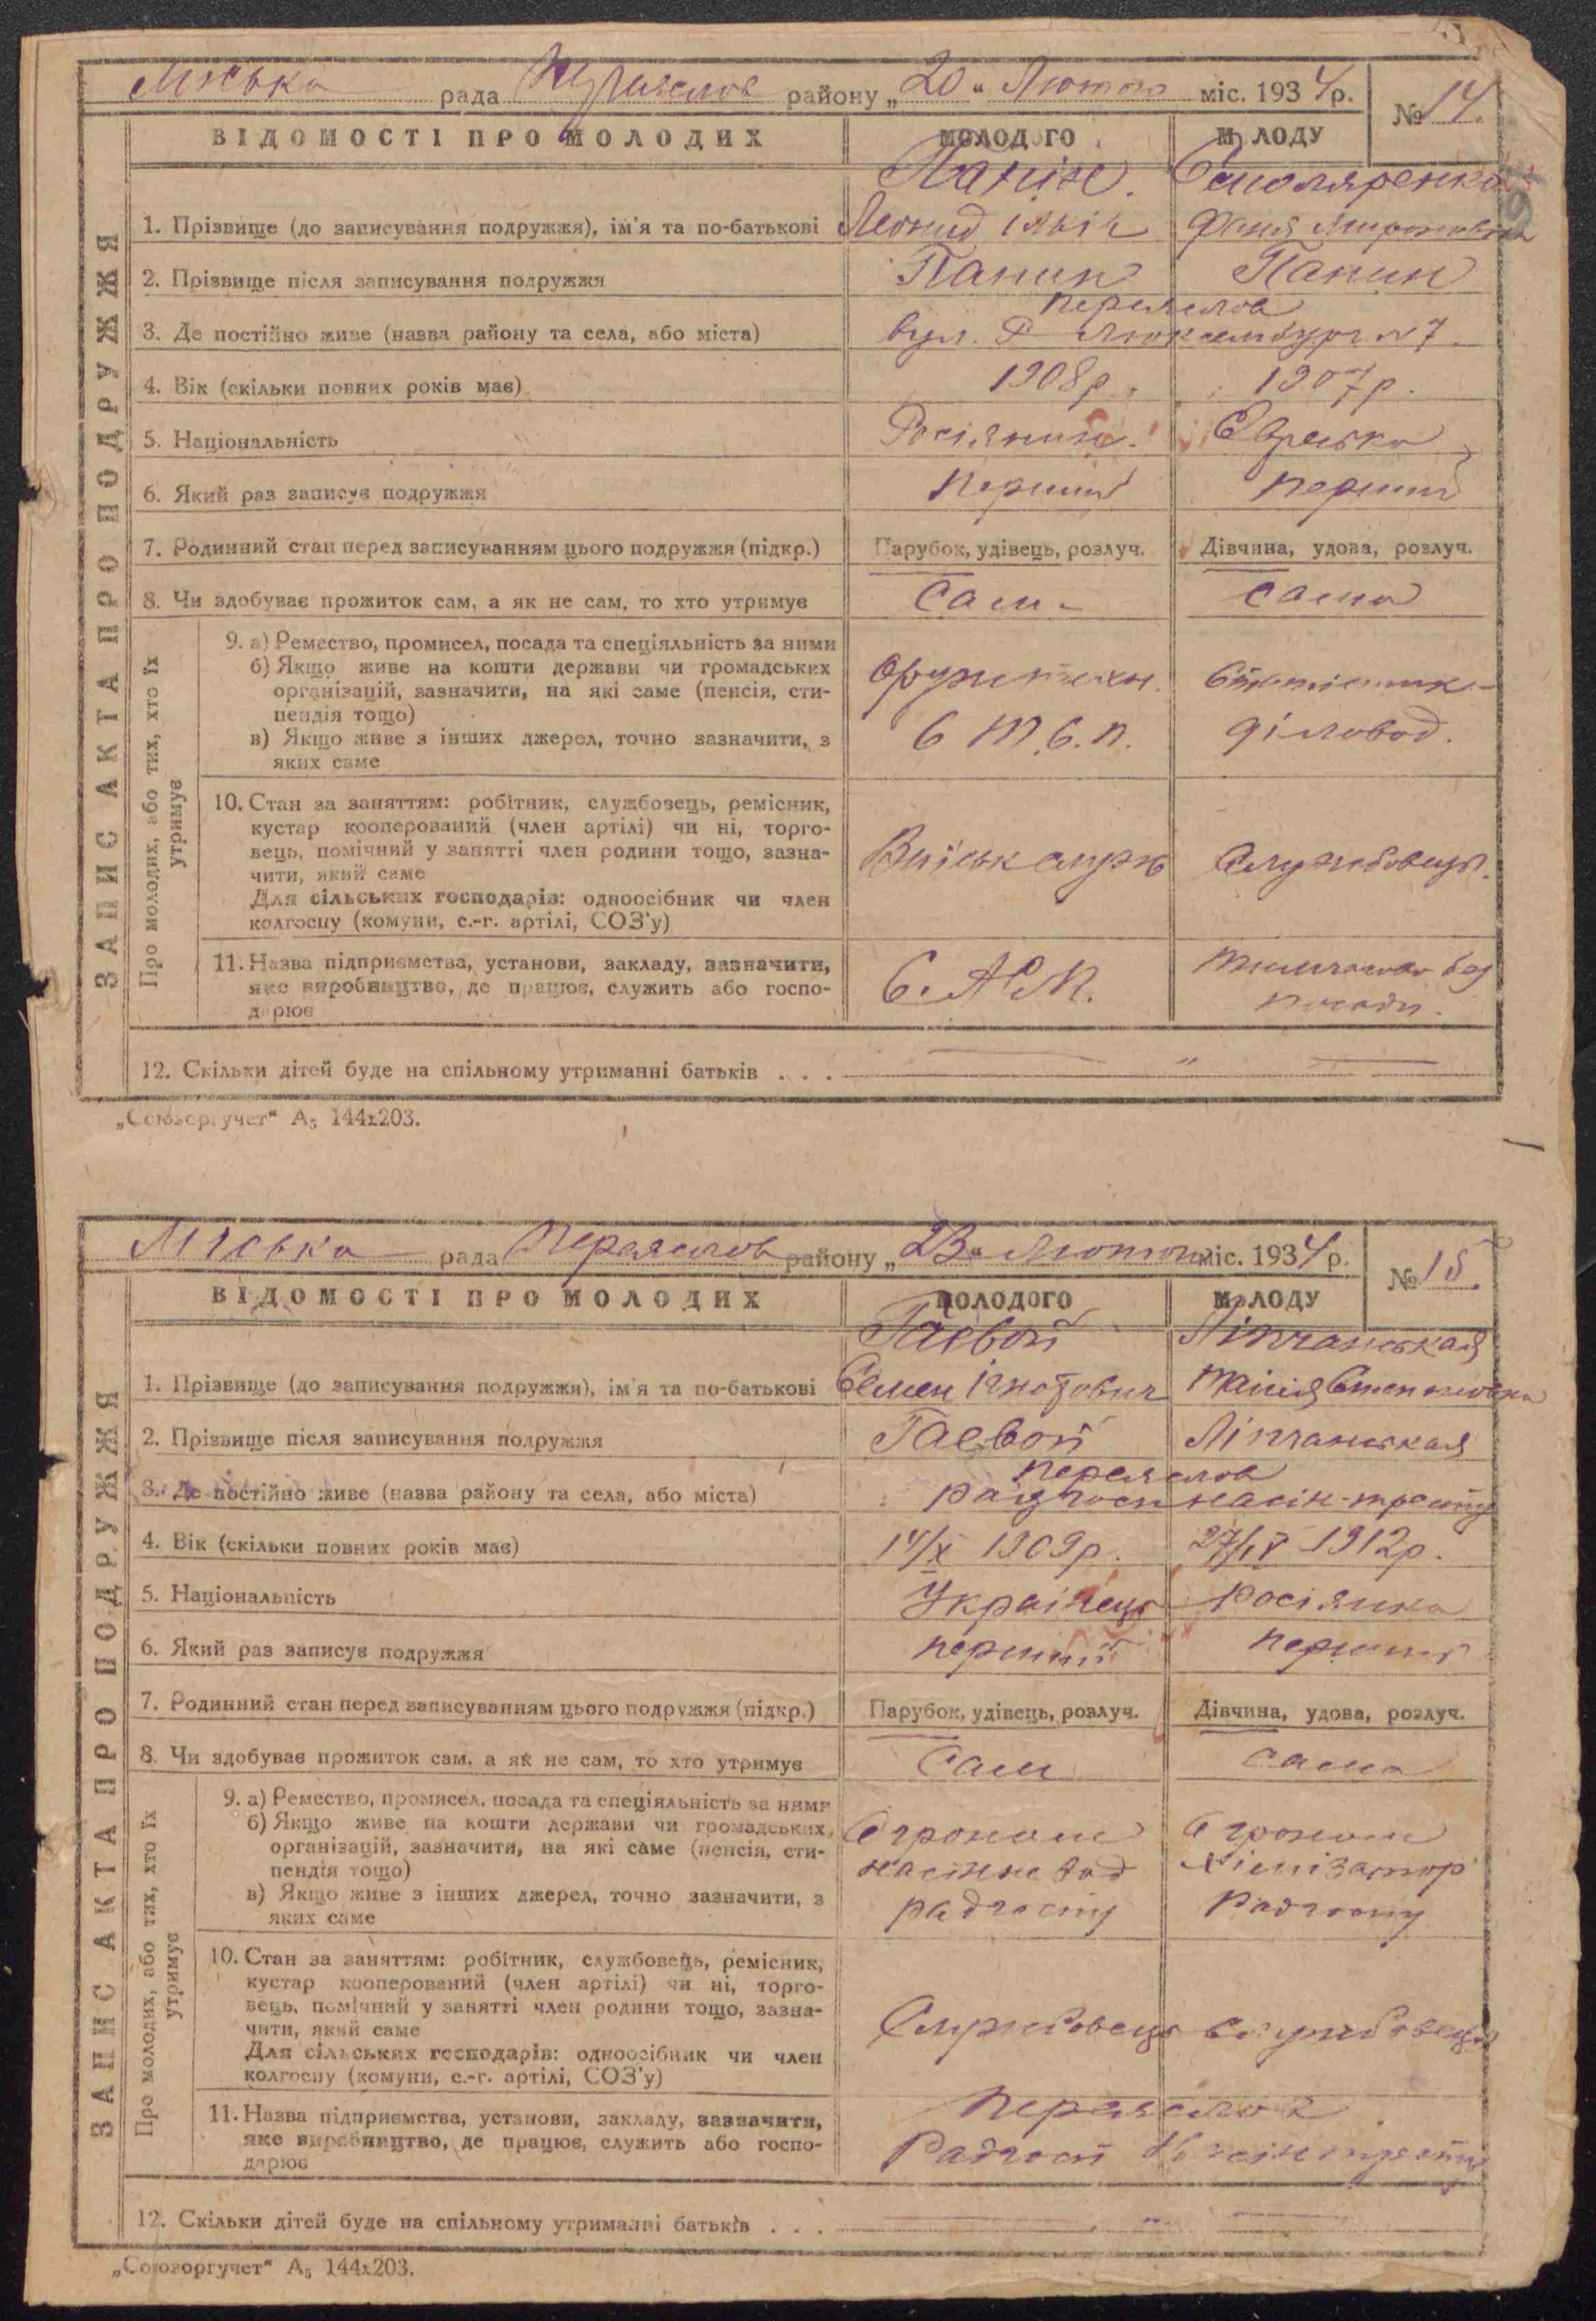 Міська рада Переяслов району „20“ Лютого міс. 1934 р. № 14.
ВІДОМОСТІ ПРО МОЛОДИХ МОЛОДОГО МОЛОДУ
ЗАПИС АКТА ПРО ПОДРУЖЖЯ
Панін. Смоляренко
1. Прізвище (до записування подружжя), ім'я та по-батькові Леонид Фаня Мироновна
2. Прізвище після записування подружжя Панин Панин
Переяслов
3. Де постійно живе (назва району та села, або міста) вул. Р Люксембург №7.
4. Вік (скільки повних років має) 1908р. 1907р.
5. Національність Росіянин. Єврейка
6. Який раз записує подружжя перший перший
7. Родинний стан перед записуванням цього подружжя (підкр.) Парубок, удівець, розлуч. Дівчина, удова, розлуч.
8. Чи здобуває прожиток сам, а як не сам, то хто утримує Сам Сама
Про молодих, або тих, хто їх утримує
9. а) Ремество, промисел, посада та спеціяльність за ними
б) Якщо живе на кошти держави чи громадських
організацій, зазначити, на які саме (пенсія, сти-
пендія тощо)
в) Якщо живе з інших джерел, точно зазначити, з
яких саме
Оружтехн.
6 Т.С.П.
Статистик-
діловод.
10. Стан за заняттям: робітник, службовець, ремісник,
кустар кооперований (член артілі) чи ні, торго-
вець, помічний у занятті член родини тощо, зазна-
чити, який саме
Для сільських господарів: одноосібник чи член
колгоспу (комуни, с.-г. артілі, СОЗ'у)
Військслужб Службовець.
11. Назва підприємства, установи, закладу, зазначити,
яке виробництво, де працює, служить або госпо-
дарює
Тимчасово без
посади.
12. Скільки дітей буде на спільному утриманні батьків . . . — „ —
„Союзоргучет“ А₅ 144x203.
Міська рада Переяслов району „23“ Лютого міс. 1934 р. № 15.
ВІДОМОСТІ ПРО МОЛОДИХ МОЛОДОГО МОЛОДУ
ЗАПИС АКТА ПРО ПОДРУЖЖЯ
Гаевой Ліпчанськая
1. Прізвище (до записування подружжя), ім'я та по-батькові Семен Ігнатович Таісія Степановна
2. Прізвище після записування подружжя Гаевой Ліпчанськая
Переяслов
3. Де постійно живе (назва району та села, або міста) Радгосп насін-тресту
4. Вік (скільки повних років має) 14/X 1909р. 27/IV 1912р.
5. Національність Українець Росіянка
6. Який раз записує подружжя перший перший
7. Родинний стан перед записуванням цього подружжя (підкр.) Парубок, удівець, розлуч. Дівчина, удова, розлуч.
8. Чи здобуває прожиток сам, а як не сам, то хто утримує Сам Сама
Про молодих, або тих, хто їх утримує
9. а) Ремество, промисел, посада та спеціяльність за ними
б) Якщо живе на кошти держави чи громадських
організацій, зазначити, на які саме (пенсія, сти-
пендія тощо)
в) Якщо живе з інших джерел, точно зазначити, з
яких саме
Агроном
насіннєвод
радгоспу
Агроном
хімізатор
Радгоспу
10. Стан за заняттям: робітник, службовець, ремісник,
кустар кооперований (член артілі) чи ні, торго-
вець, помічний у занятті член родини тощо, зазна-
чити, який саме
Для сільських господарів: одноосібник чи член
колгоспу (комуни, с.-г. артілі, СОЗ'у)
Службовець Службовець
11. Назва підприємства, установи, закладу, зазначити,
яке виробництво, де працює, служить або госпо-
дарює
Переяслов
Радгосп Насінтресту
12. Скільки дітей буде на спільному утриманні батьків . . . — „ —
„Союзоргучет“ А₅ 144x203.